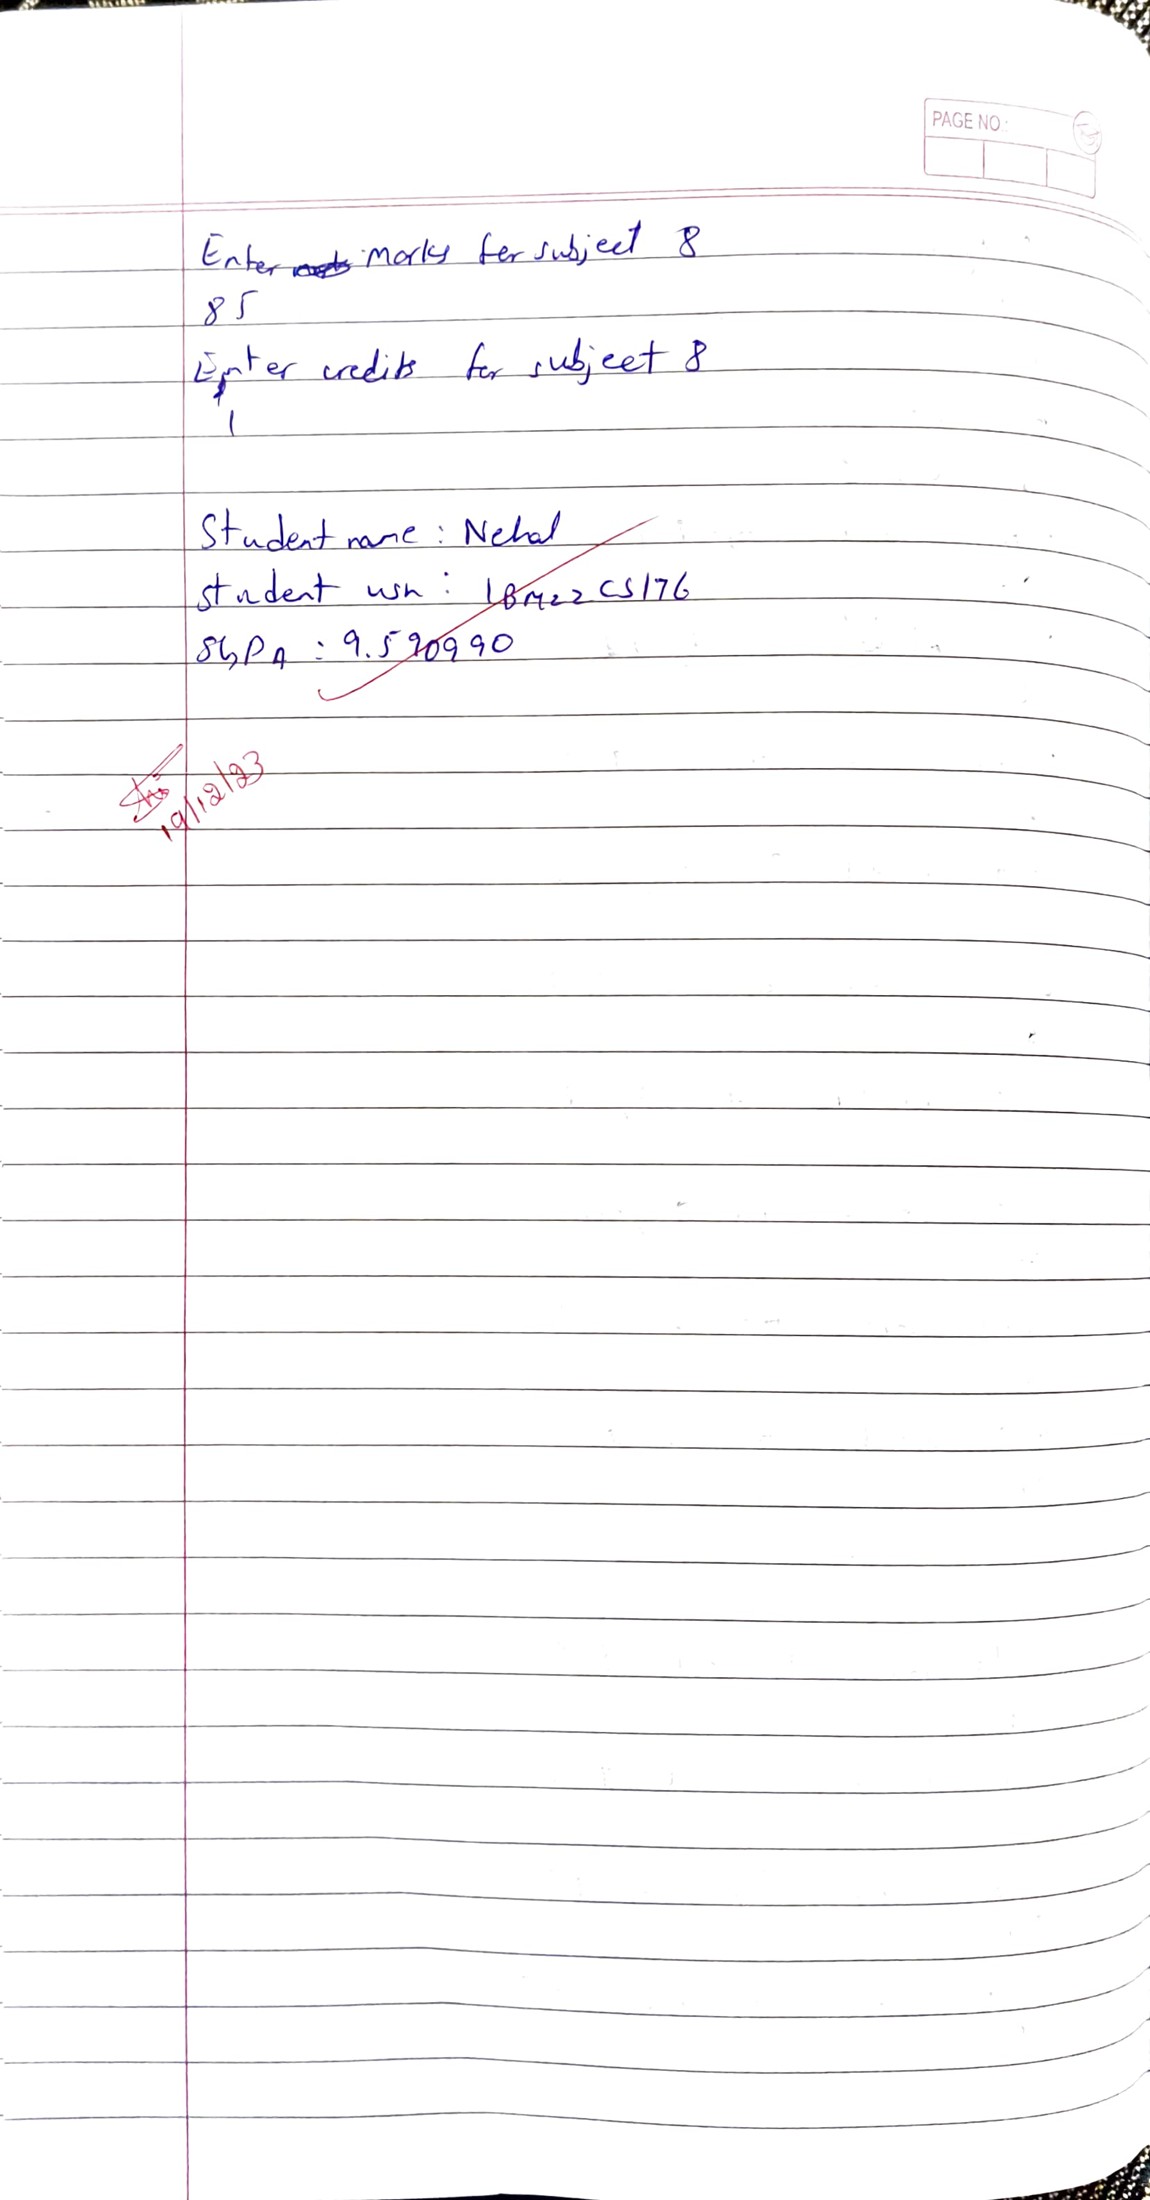 PAGE NO:
Enter marks for subject 8
85
Enter credits for subject 8
1
Student name : Nehal
student usn : 1BM22CS176
SGPA : 9.590990
19/12/23